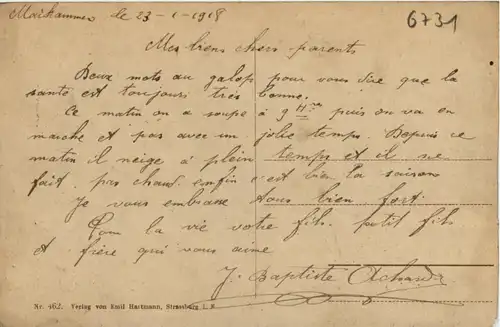 Maikammer le 23-1-1918
6731
Mes biens chers parents
Deux mots au galop pour vous dire que la
santé est toujours très bonne.
Ce matin on a soupe à 9 H puis on va en
marche et pas avec un jolie temps. Depuis ce
matin il neige à plein temps et il ne
fait pas chaud. enfin c'est bien la saison
Je vous embrasse tous bien fort.
Pour la vie votre fils. petit fils
et frère qui vous aime
J. Baptiste
Nr. 462. Verlag von Emil Hartmann, Strassburg i. E.